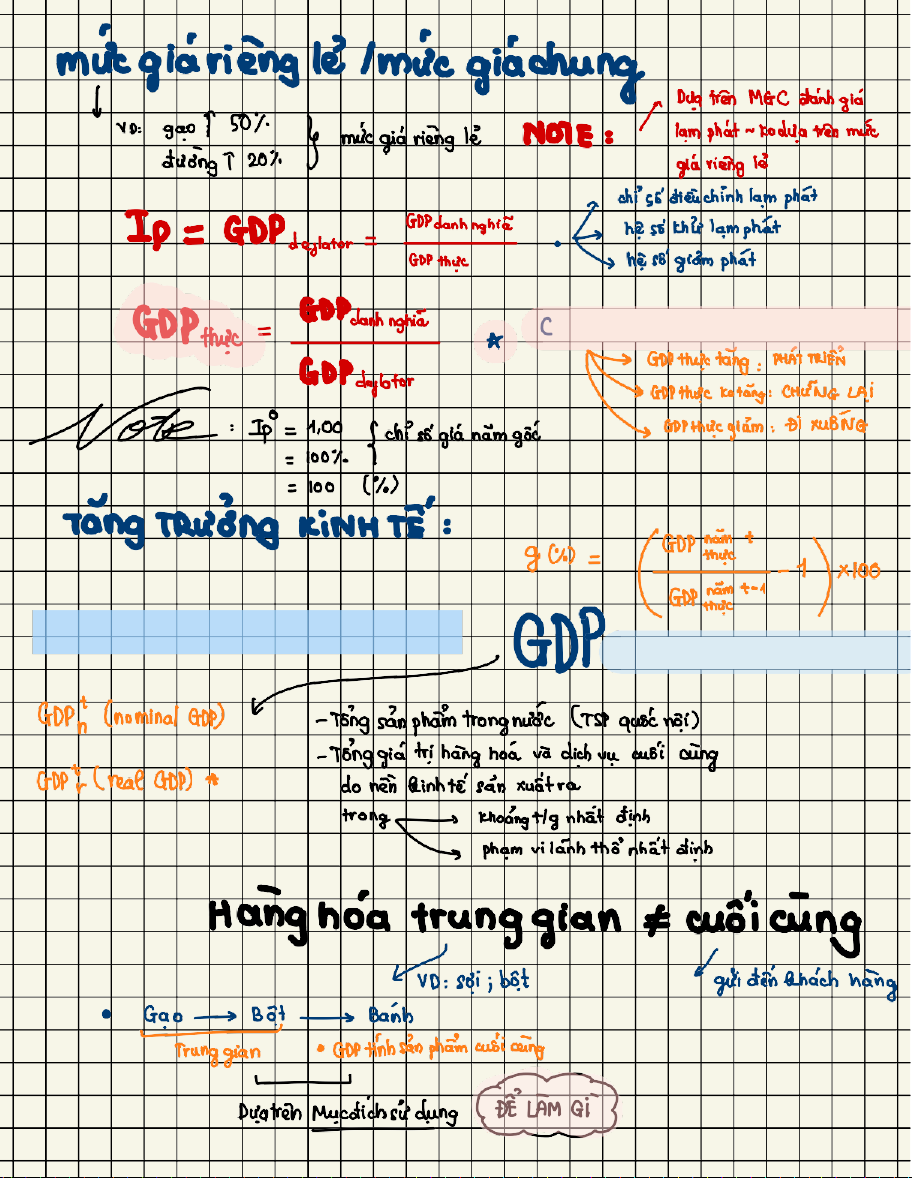 mức giá riêng lẻ / mức giá chung
VD: gạo ↑ 50%
đường ↑ 20%
mức giá riêng lẻ
NOTE:
Dựa trên MGC đánh giá
lạm phát ~ ko dựa trên mức
giá riêng lẻ
Ip = GDP deflator = GDP danh nghĩa
GDP thực
• chỉ số điều chỉnh lạm phát
hệ số khử lạm phát
hệ số giảm phát
GDP thực = GDP danh nghĩa
GDP deflator
* C
GDP thực tăng: PHÁT TRIỂN
GDP thực ko tăng: CHỮNG LẠI
GDP thực giảm: ĐI XUỐNG
Note: Ip⁰ = 1,00
= 100%
= 100 (%)
chỉ số giá năm gốc
TĂNG TRƯỞNG KINH TẾ:
g (%) = (GDP năm t thực
GDP năm t-1 thực
- 1) x100
GDP
GDPₙᵗ (nominal GDP)
GDPᵣᵗ (real GDP) *
- Tổng sản phẩm trong nước (TSP quốc nội)
- Tổng giá trị hàng hoá và dịch vụ cuối cùng
do nền kinh tế sản xuất ra
trong → khoảng t/g nhất định
phạm vi lãnh thổ nhất định
Hàng hóa trung gian ≠ cuối cùng
VD: sợi; bột
gửi đến khách hàng
• Gạo → Bột → Bánh
Trung gian
• GDP tính sản phẩm cuối cùng
Dựa trên Mục đích sử dụng
ĐỂ LÀM GÌ